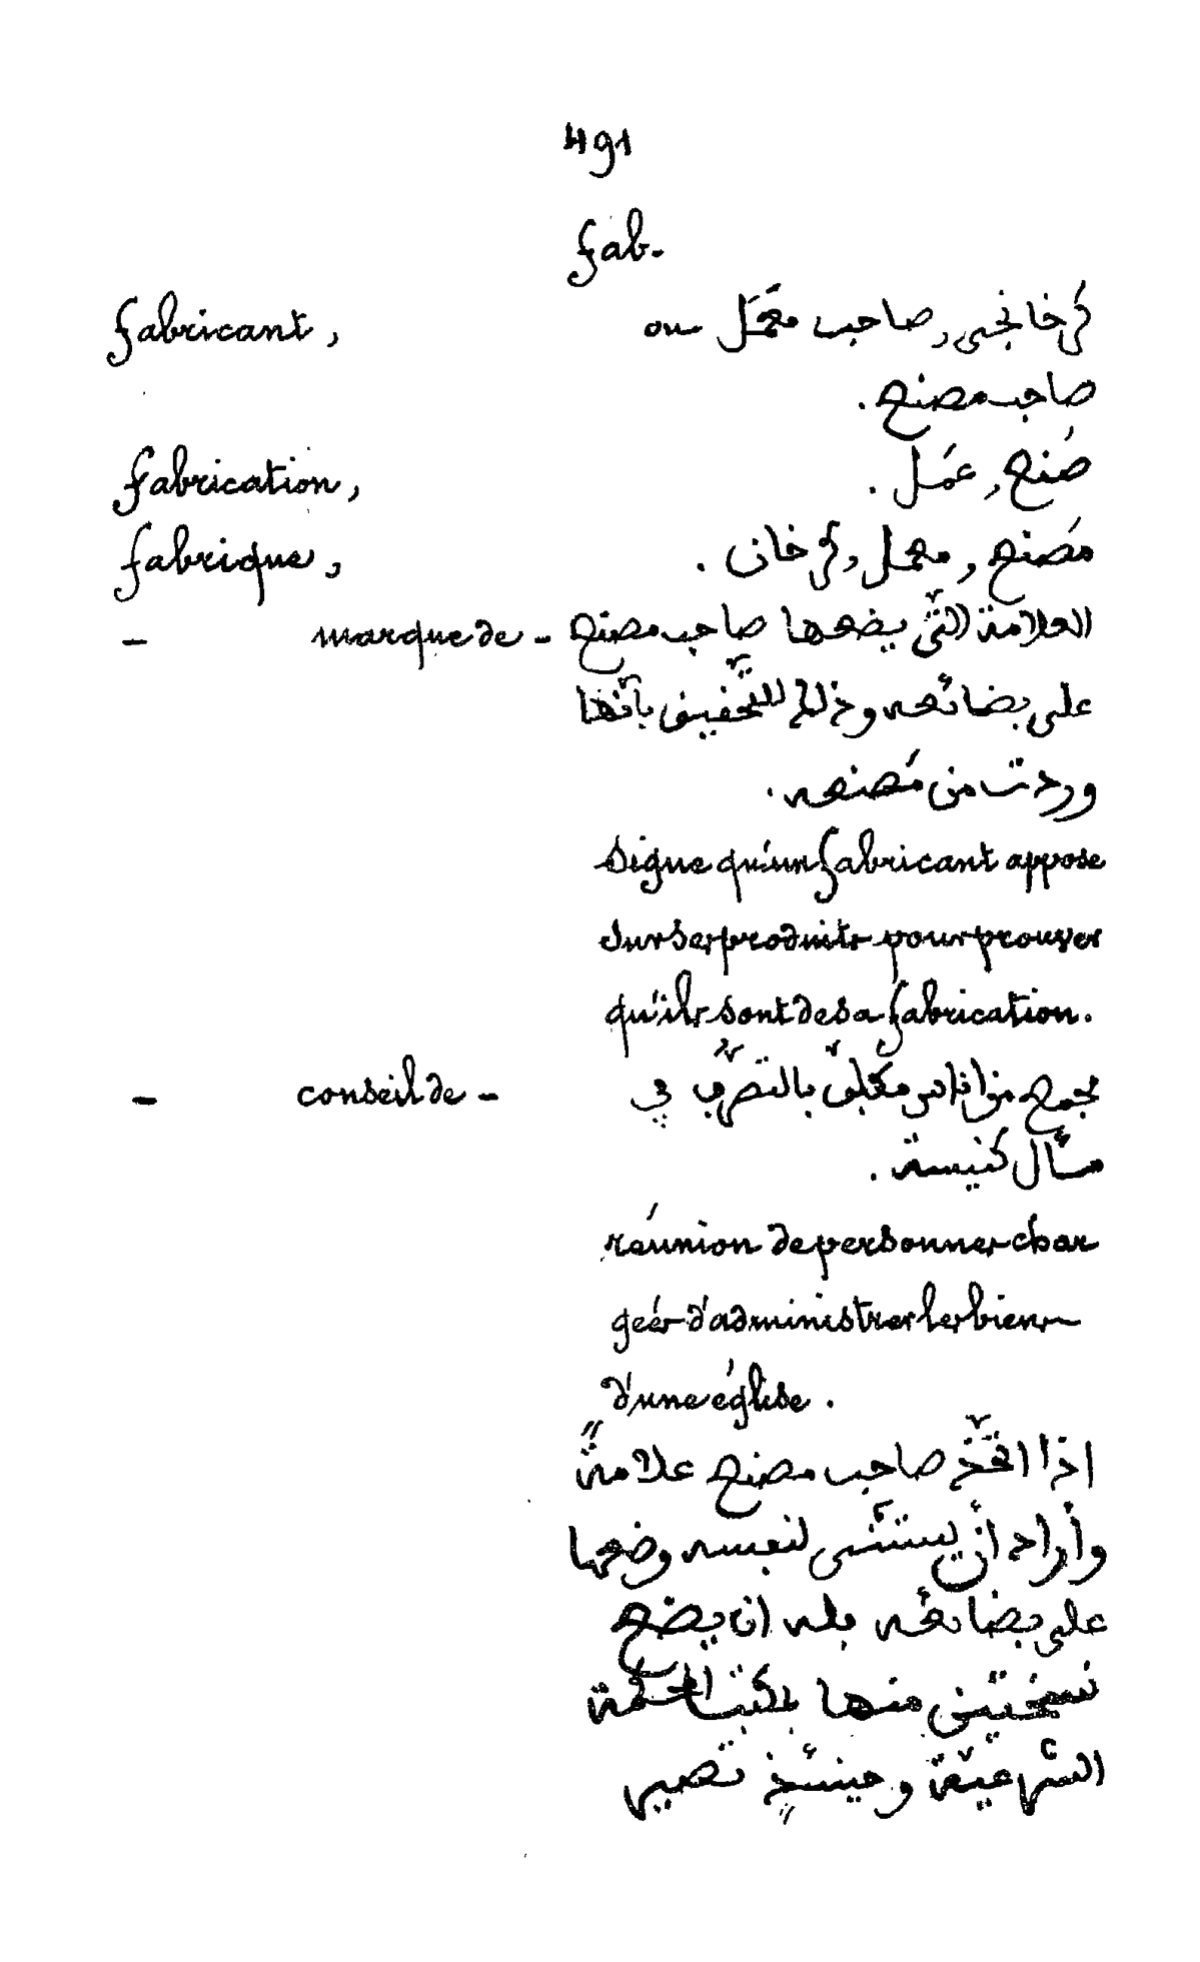 491
fab.
fabricant, كرخانجى, صاحب معمَل ou
صاحب مصنع.
fabrication, صُنع, عمَل.
fabrique, مَصنع, معمل, كرخان.
- marque de - العلامة الّتى يضعها صاحب مصنع
على بضائعه وذلك للتّحقيق بأنّها
وردت من مَصنعه.
Signe qu'un fabricant appose
sur ses produits pour prouver
qu'ils sont de sa fabrication.
- conseil de - مجمع من اناس مكلّف بالتصرّف في
مسأل كنيسة.
réunion de personnes char
geés d'administrer les biens
d'une église.
اذا اتّخذ صاحب مصنع علامةً
وأراد أن يستثنى لنفسه وضعها
على بضائعه فله ان يضع
نسختين منها بمكتب المحكمة
الشرعيّة وحينئذٍ تصير